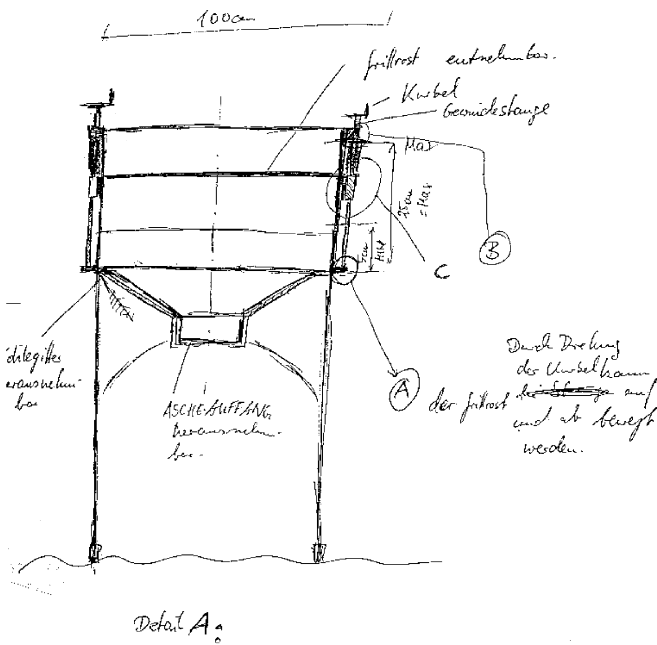 100cm
Grillrost entnehmbar.
Kurbel
Gewindestange
Max
25cm
= Max
Min
B
C
A
herausnehm-
bar
ASCHEAUFFANG
herausnehm-
bar.
Durch Drehung
der Kurbel kann
der Grillrost auf
und ab bewegt
werden.
Detail A: